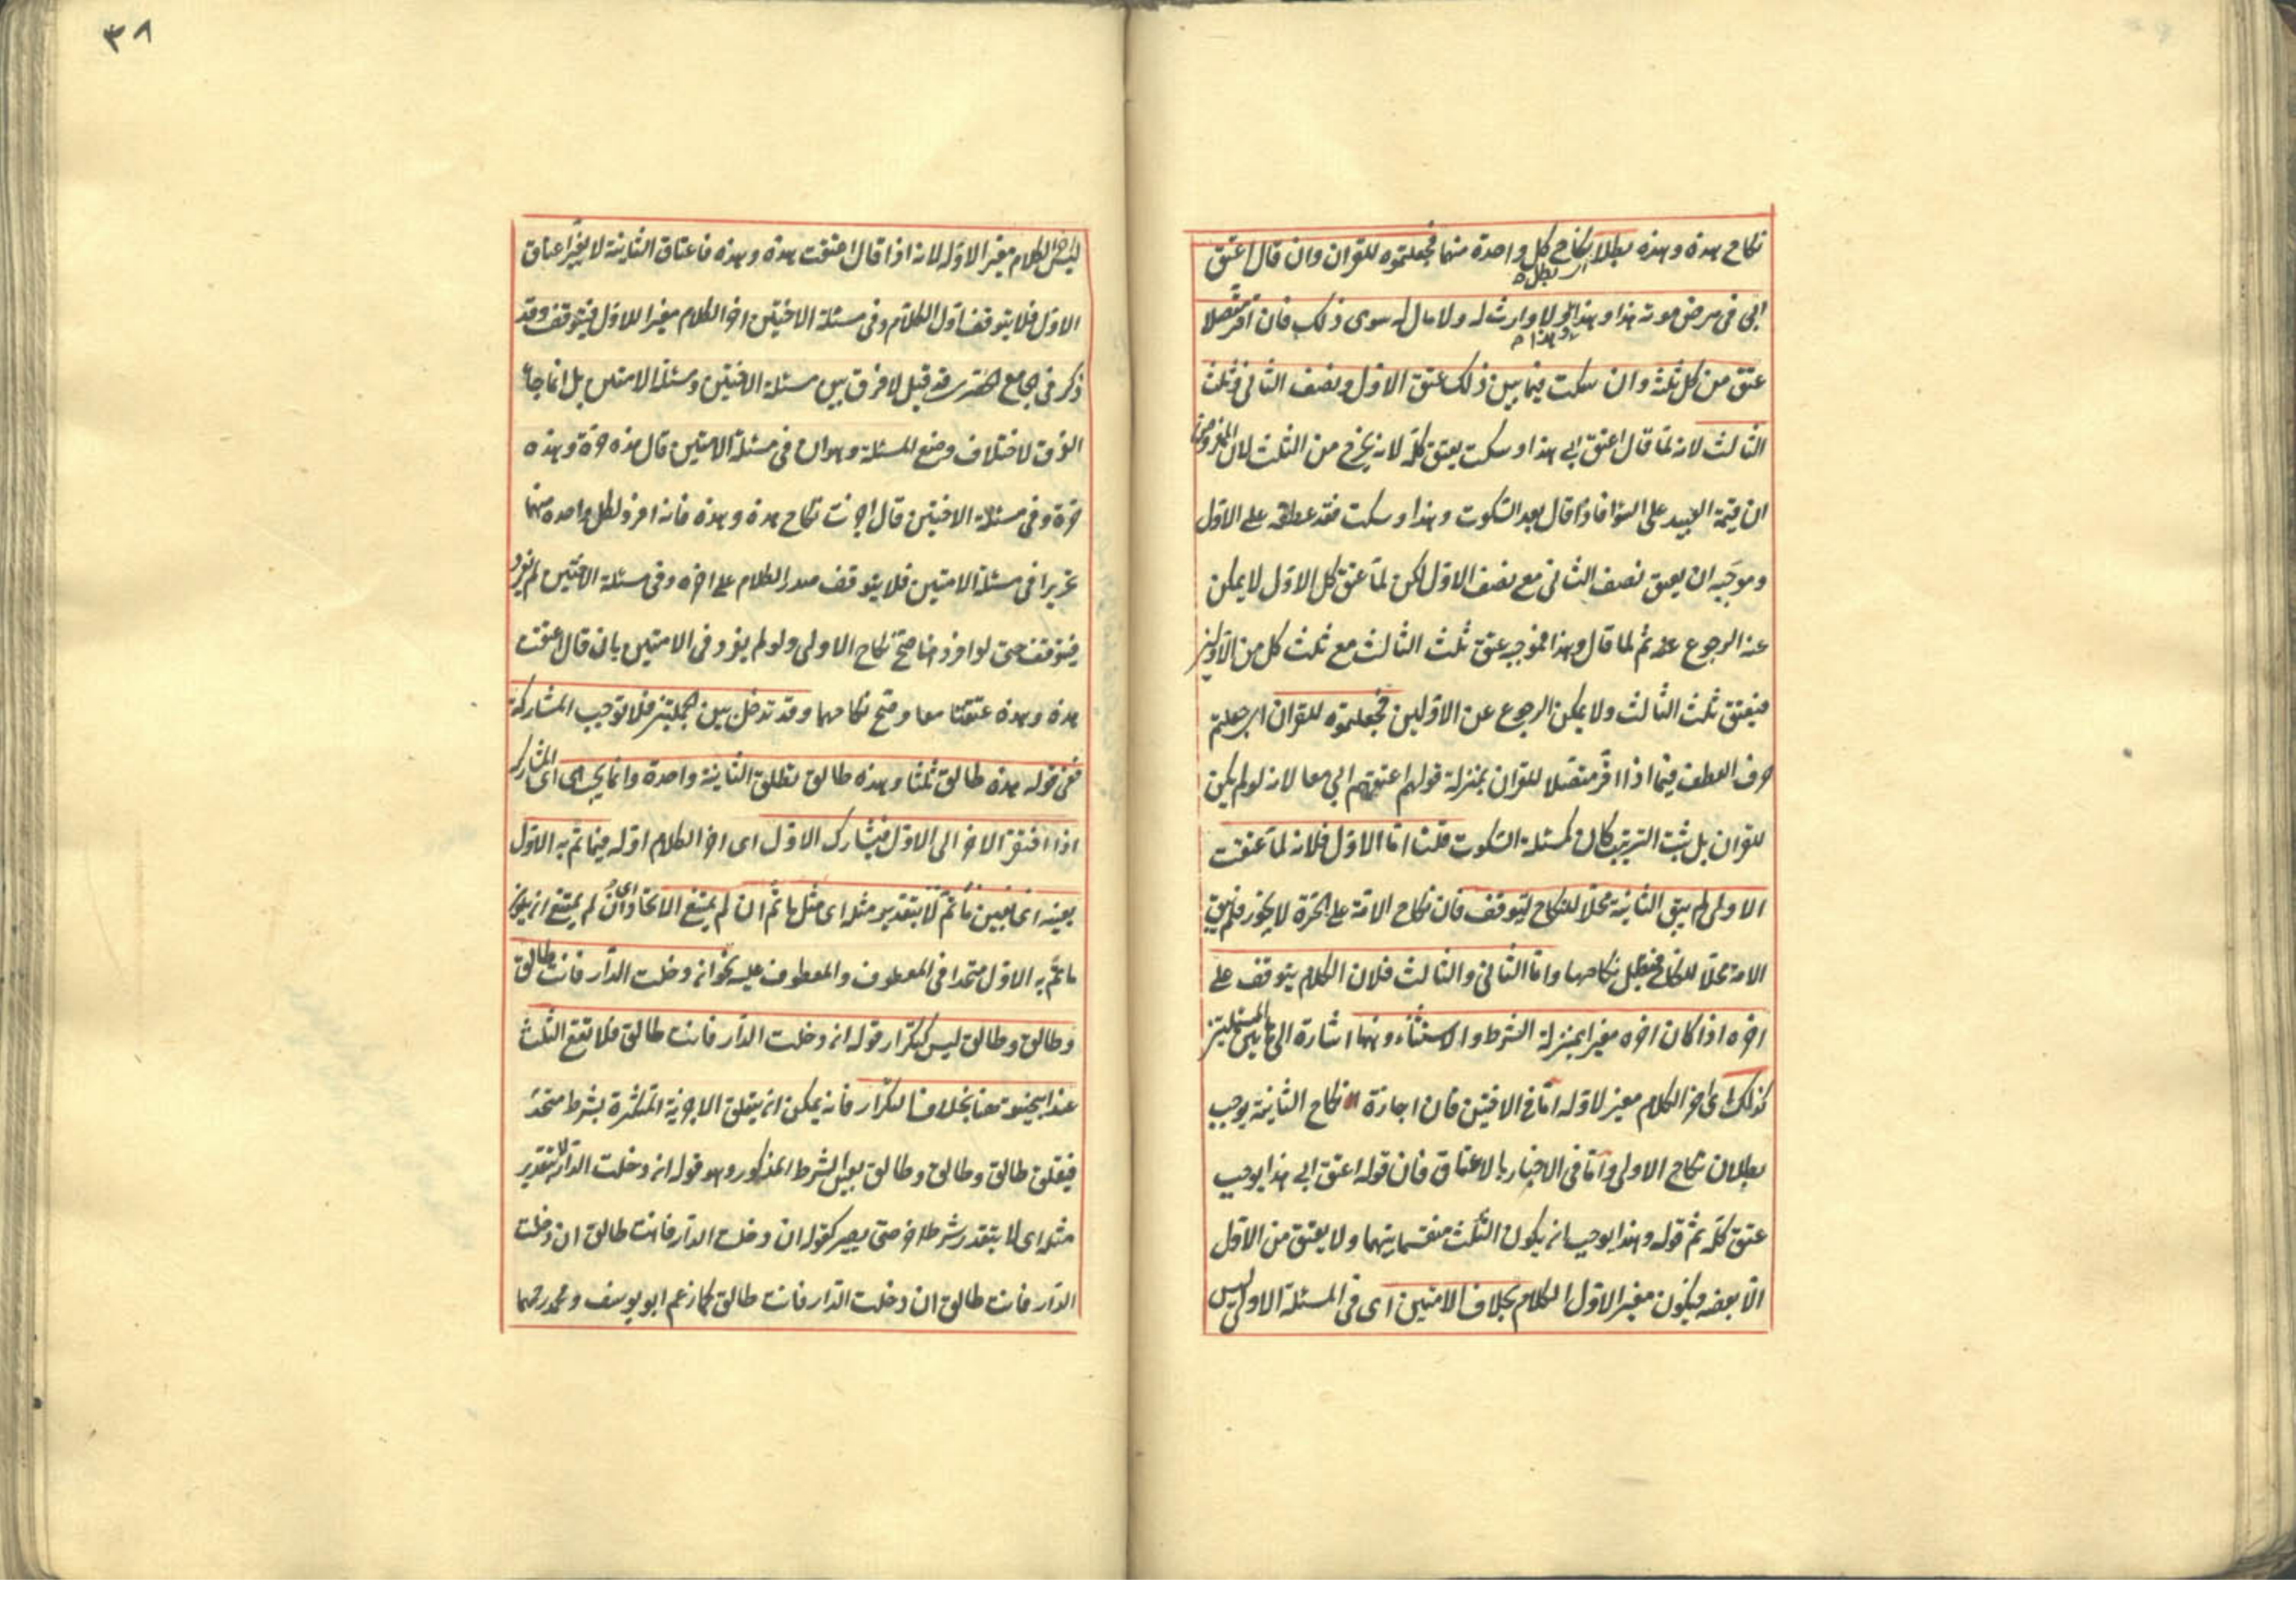 نكاح هذه وهذه بطلا نكاح كل واحدة منهما فجعلتموه للقران وان قال اعتق
اى بطل
ابى فى مرض موته هذا وهذا ولا وارث له ولا مال له سوى ذلك فان اقر متصلا
وهذا م
عتق من كل ثلثه وان سكت فيما بين ذلك عتق الاول ونصف الثانى وثلث
الثالث لانه لما قال اعتق ابى هذا وسكت يعتق كله لانه يخرج من الثلث لان المفروض
ان قيمة العبيد على السواء فاذا قال بعد السكوت وهذا وسكت فقد عطفه على الاول
وموجبه ان يعتق نصف الثانى مع نصف الاول لكن لما عتق كل الاول لا يمكن
عنه الرجوع عنه ثم لما قال وهذا فموجبه عتق ثلث الثالث مع ثلث كل من الاولين
فيعتق ثلث الثالث ولا يمكن الرجوع عن الاولين فجعلتموه للقران اى جعلتم
حرف العطف فيما اذا اقر متصلا للقران بمنزلة قولهم اعتقهم ابى معا لانه لو لم يكن
للقران بل يثبت الترتيب كان كمسئلة السكوت قلنا اما الاول فلانه لما عتقت
الاولى لم يبق الثانية محلا للنكاح ليتوقف فان نكاح الامة على الحرة لا يجوز فلم يبق
الامة محلا للنكاح فبطل نكاحها واما الثانى والثالث فلان الكلام يتوقف على
اخره اذا كان اخره مغيرا بمنزلة الشرط والاستثناء وهنا اشارة الى المسئلتين
كذلك اى اخر الكلام مغير لاوله اما فى الاختين فان اجازة نكاح الثانية يوجب
بطلان نكاح الاولى واما فى الاخبار بالاعتاق فان قوله اعتق ابى هذا يوجب
عتق كله ثم قوله وهذا يوجب ان يكون الثلث منقسما بينهما ولا يعتق من الاول
الا بعضه فيكون مغير الاول الكلام بخلاف الامتين اى فى المسئلة الاولى ليس
٣٨
ليس اخر الكلام مغير الاوله لانه اذا قال اعتقت هذه وهذه فاعتاق الثانية لا يغير اعتاق
الاول فلا يتوقف اول الكلام وفى مسئلة الاختين اخر الكلام مغير اللاول فيتوقف وقد
ذكر فى الجامع قد قيل لا فرق بين مسئلة الاختين ومسئلة الامتين بل انما جاء
الفرق لاختلاف وضع المسئلة وهو ان فى مسئلة الامتين قال هذه حرة وهذه
حرة وفى مسئلة الاختين قال اجزت نكاح هذه وهذه فانه افرد لكل واحدة منهما
تحريرا فى مسئلة الامتين فلا يتوقف صدر الكلام على اخره وفى مسئلة الاختين لم يفرد
فيتوقف حتى لو افرد هنا صح نكاح الاولى ولو لم يفرد فى الامتين بان قال اعتقت
هذه وهذه عتقتا معا وصح نكاحهما وقد تدخل بين الجملتين فلا توجب المشاركة
ففى قوله هذه طالق ثلثا وهذه طالق تطلق الثانية واحدة وانما يجب هى اى المشاركة
اذا افتقر الاخر الى الاول فيشارك الاول اى اخر الكلام اوله فيما تم به الاول
بعينه اى بعين ما تم لا بتقدير مثله اى مثل ما تم ان لم يمتنع الاتحاد اى ان لم يمتنع ان يكون
ما تم به الاول متحدا فى المعطوف والمعطوف عليه نحو ان دخلت الدار فانت طالق
وطالق وطالق ليس كتكرار قوله ان دخلت الدار فانت طالق فلا تقع الثلث
عند ابيحنيفة هنا بخلاف التكرار فانه يمكن ان يتعلق الاجزية المتكثرة بشرط متحد
فيعلق طالق وطالق وطالق بعين الشرط المذكور وهو قوله ان دخلت الدار لا بتقدير
مثله اى لا يتقدر شرط اخر حتى يصير كقوله ان دخلت الدار فانت طالق ان دخلت
الدار فانت طالق ان دخلت الدار فانت طالق كما زعم ابو يوسف ومحمد رحمهما